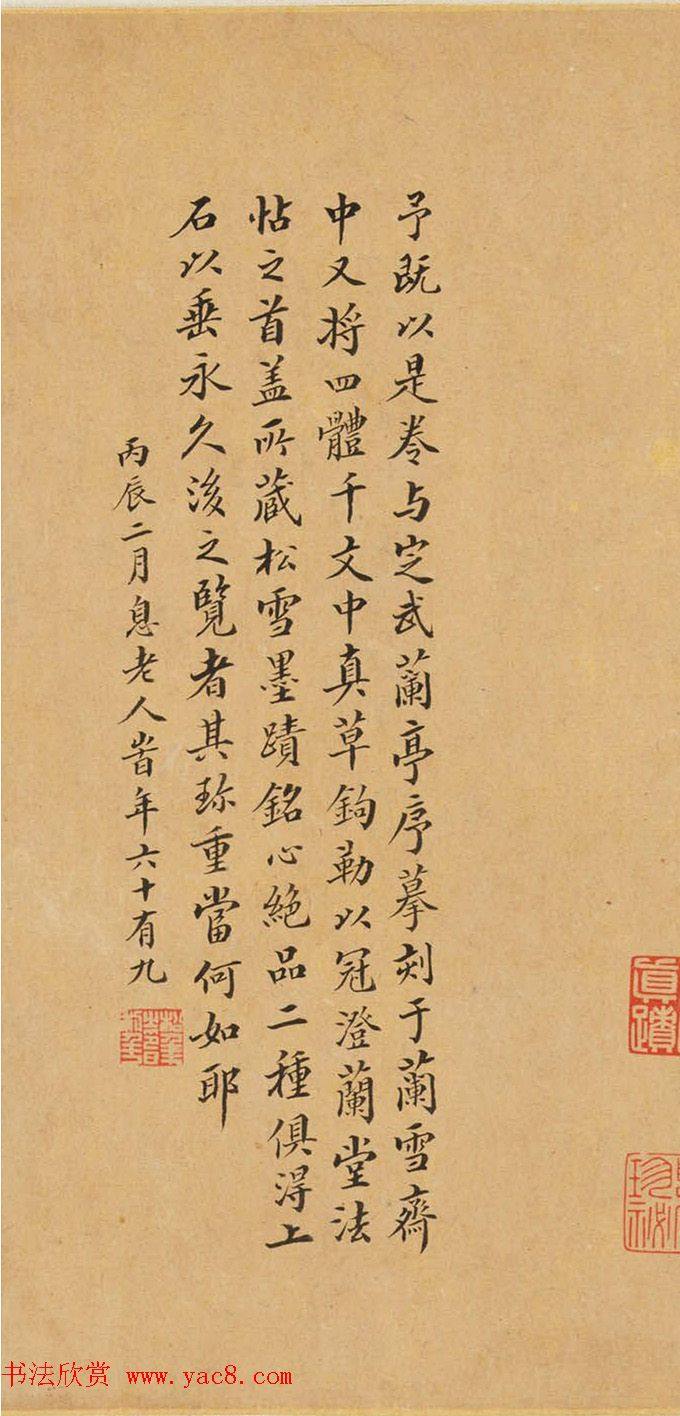 予既以是卷与定武蘭亭序摹刻于蘭雪齋
中又将四體千文中真草鉤勒以冠澄蘭堂法
帖之首盖所蔵松雪墨蹟銘心絶品二種俱得上
石以垂永久後之覽者其珎重當何如耶
丙辰二月息老人峕年六十有九
真蹟
書法欣赏 www.yac8.com